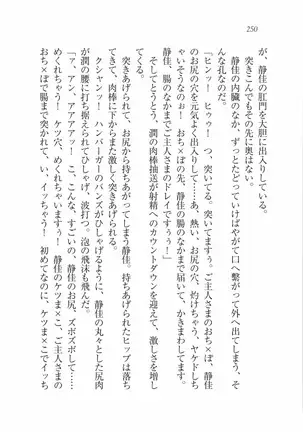 250
が、静佳の肛門を大胆に出入りしている。
突きこんでもその先に奥はない。
静佳の内臓のなか、ずっとたどっていけばやがて口へ繋がって外へ出てしまう、そ
んな孔なのだ。
「ヒンッ！　ヒゥゥ！　つ、突いてる。突いてますぅ！　ご主人さまのおち×ぽ、静
佳のお尻の穴を元気よく出入りして……あ、熱い、お尻の穴、ヤケドしちゃ
いそうなのぉ！　おち×ぽの先、静佳の腸のなかまで届いて、かきまわしてます
ぅ！　腸のなかまでご主人さまのドレイですぅぅ！」
そしてとうとう、潤の肉棒抽送が射精へのカウントダウンを迎えて、激しさを増し
てくる。肉棒に下からまた激しく突きあげられる。
突きあげられて、お尻から持ちあがってしまう静佳。持ちあげられたヒップは落ち
クシャンッ！　ハンバーガーのバンズがひしゃげるように、静佳の丸々とした尻肉
が潤の腰に打ち据えられてひしゃげ、波打つ。泡の飛沫も飛んだ。
「ァ、アン、アアアァッ！　こ、こんな、すごいの、静佳のお尻、ズボズボして……
めくれちゃう！　ケツ穴、めくれちゃいますぅ！　静佳のケツま×こ、ご主人さまの
おち×ぽで腸まで突かれて、い、イッちゃう！　初めてなのに、ケツま×こでイッち